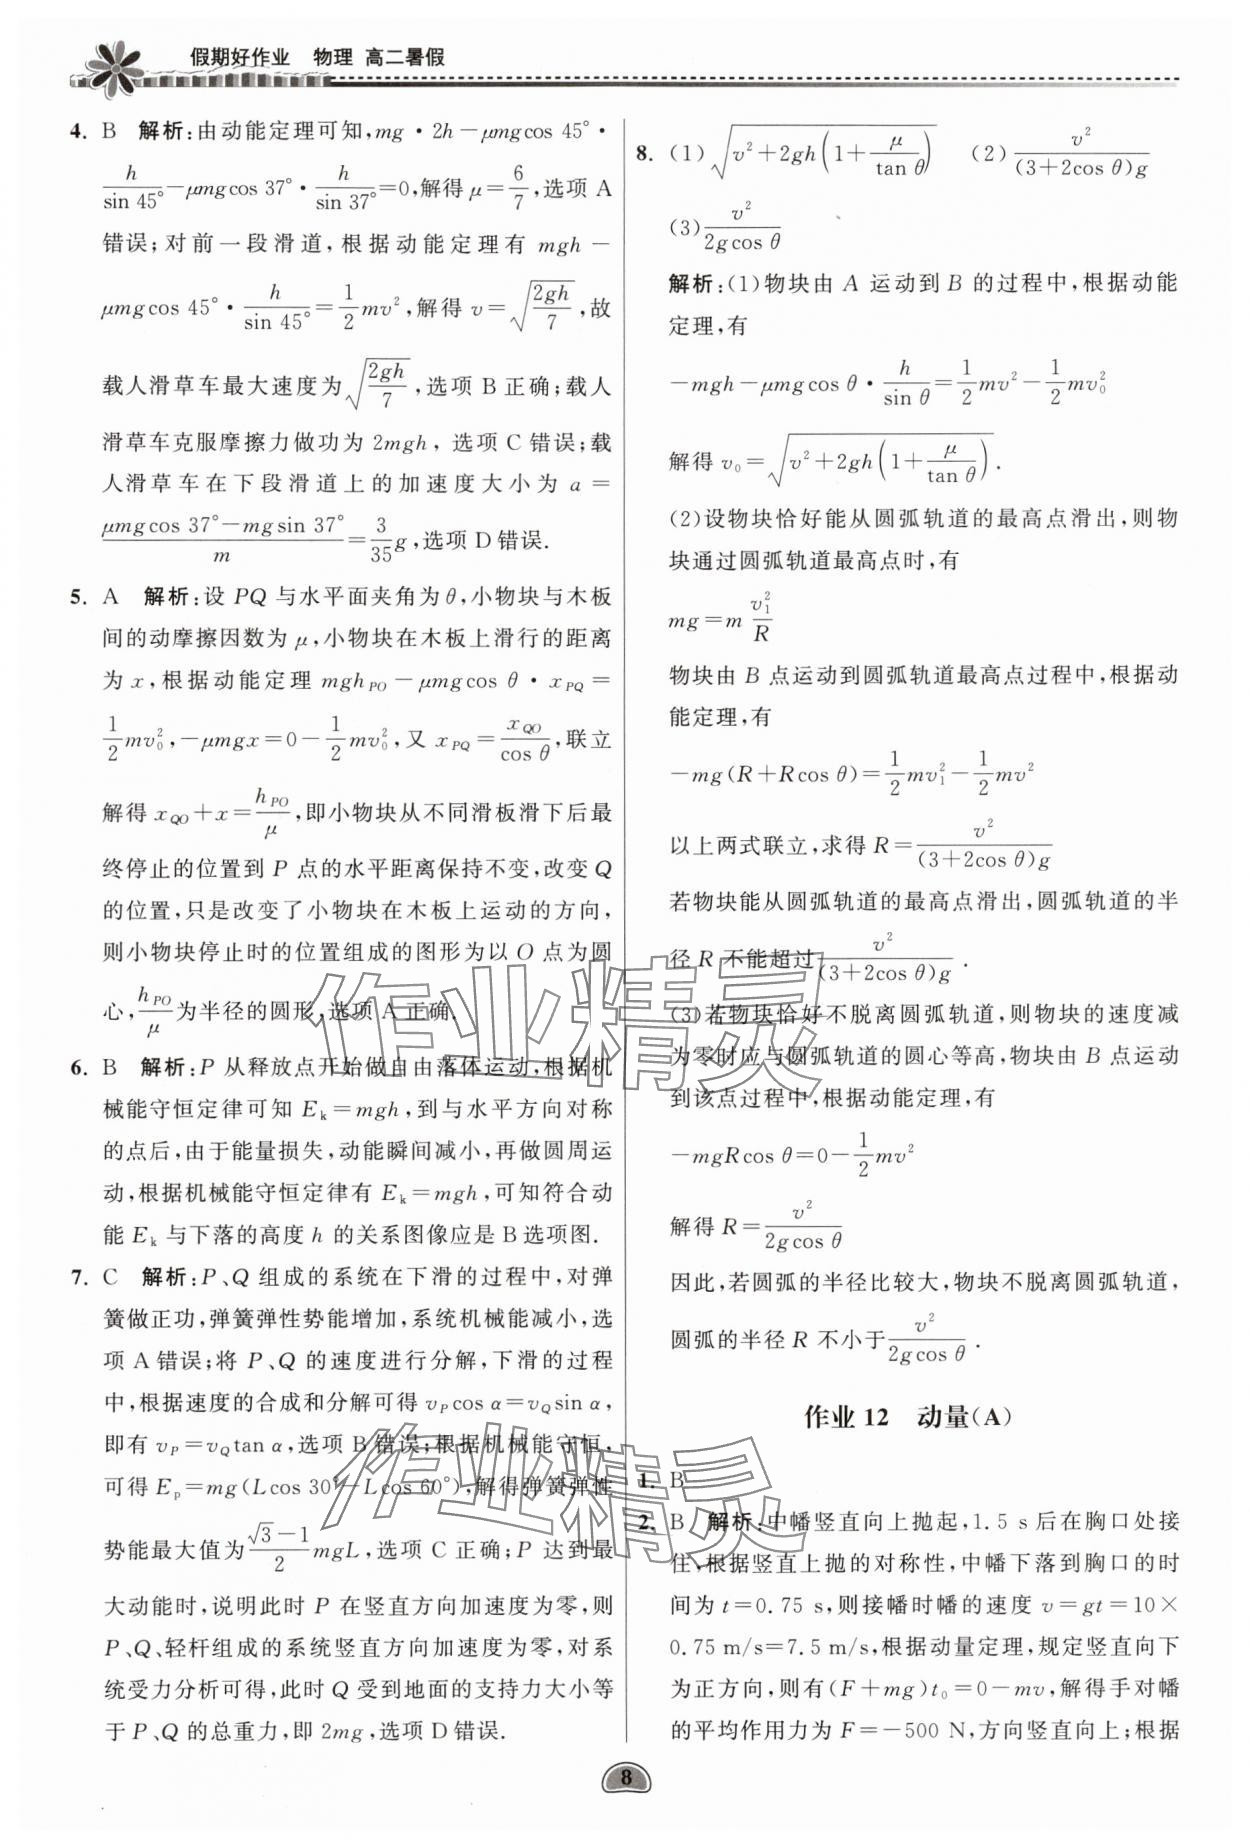 假期好作业 物理 高二暑假
4. B 解析:由动能定理可知,mg·2h-μmgcos 45°·
h/sin 45°-μmgcos 37°·h/sin 37°=0,解得μ=6/7,选项A
错误;对前一段滑道,根据动能定理有mgh-
μmgcos 45°·h/sin 45°=1/2mv²,解得v=√(2gh/7),故
载人滑草车最大速度为√(2gh/7),选项B正确;载人
滑草车克服摩擦力做功为2mgh,选项C错误;载
人滑草车在下段滑道上的加速度大小为a=
(μmgcos 37°-mgsin 37°)/m=3/35g,选项D错误.
5. A 解析:设PQ与水平面夹角为θ,小物块与木板
间的动摩擦因数为μ,小物块在木板上滑行的距离
为x,根据动能定理mgh_PO-μmgcos θ·x_PQ=
1/2mv₀²,-μmgx=0-1/2mv₀²,又x_PQ=x_QO/cos θ,联立
解得x_QO+x=h_PO/μ,即小物块从不同滑板滑下后最
终停止的位置到P点的水平距离保持不变,改变Q
的位置,只是改变了小物块在木板上运动的方向,
则小物块停止时的位置组成的图形为以O点为圆
心,h_PO/μ为半径的圆形,选项A正确.
6. B 解析:P从释放点开始做自由落体运动,根据机
械能守恒定律可知E_k=mgh,到与水平方向对称
的点后,由于能量损失,动能瞬间减小,再做圆周运
动,根据机械能守恒定律有E_k=mgh,可知符合动
能E_k与下落的高度h的关系图像应是B选项图.
7. C 解析:P、Q组成的系统在下滑的过程中,对弹
簧做正功,弹簧弹性势能增加,系统机械能减小,选
项A错误;将P、Q的速度进行分解,下滑的过程
中,根据速度的合成和分解可得v_Pcos α=v_Qsin α,
即有v_P=v_Qtan α,选项B错误;根据机械能守恒,
可得E_p=mg(Lcos 30°-Lcos 60°),解得弹簧弹性
势能最大值为(√3-1)/2mgL,选项C正确;P达到最
大动能时,说明此时P在竖直方向加速度为零,则
P、Q、轻杆组成的系统竖直方向加速度为零,对系
统受力分析可得,此时Q受到地面的支持力大小等
于P、Q的总重力,即2mg,选项D错误.
8. (1)√(v²+2gh(1+μ/tan θ)) (2)v²/((3+2cos θ)g)
(3)v²/(2gcos θ)
解析:(1)物块由A运动到B的过程中,根据动能
定理,有
-mgh-μmgcos θ·h/sin θ=1/2mv²-1/2mv₀²
解得v₀=√(v²+2gh(1+μ/tan θ)).
(2)设物块恰好能从圆弧轨道的最高点滑出,则物
块通过圆弧轨道最高点时,有
mg=m v₁²/R
物块由B点运动到圆弧轨道最高点过程中,根据动
能定理,有
-mg(R+Rcos θ)=1/2mv₁²-1/2mv²
以上两式联立,求得R=v²/((3+2cos θ)g)
若物块能从圆弧轨道的最高点滑出,圆弧轨道的半
径R不能超过v²/((3+2cos θ)g).
(3)若物块恰好不脱离圆弧轨道,则物块的速度减
为零时应与圆弧轨道的圆心等高,物块由B点运动
到该点过程中,根据动能定理,有
-mgRcos θ=0-1/2mv²
解得R=v²/(2gcos θ)
因此,若圆弧的半径比较大,物块不脱离圆弧轨道,
圆弧的半径R不小于v²/(2gcos θ).
作业12 动量(A)
1. B
2. B 解析:中幡竖直向上抛起,1.5 s后在胸口处接
住,根据竖直上抛的对称性,中幡下落到胸口的时
间为t=0.75 s,则接幡时幡的速度v=gt=10×
0.75 m/s=7.5 m/s,根据动量定理,规定竖直向下
为正方向,则有(F+mg)t₀=0-mv,解得手对幡
的平均作用力为F=-500 N,方向竖直向上;根据
8
作业精灵
作业精灵